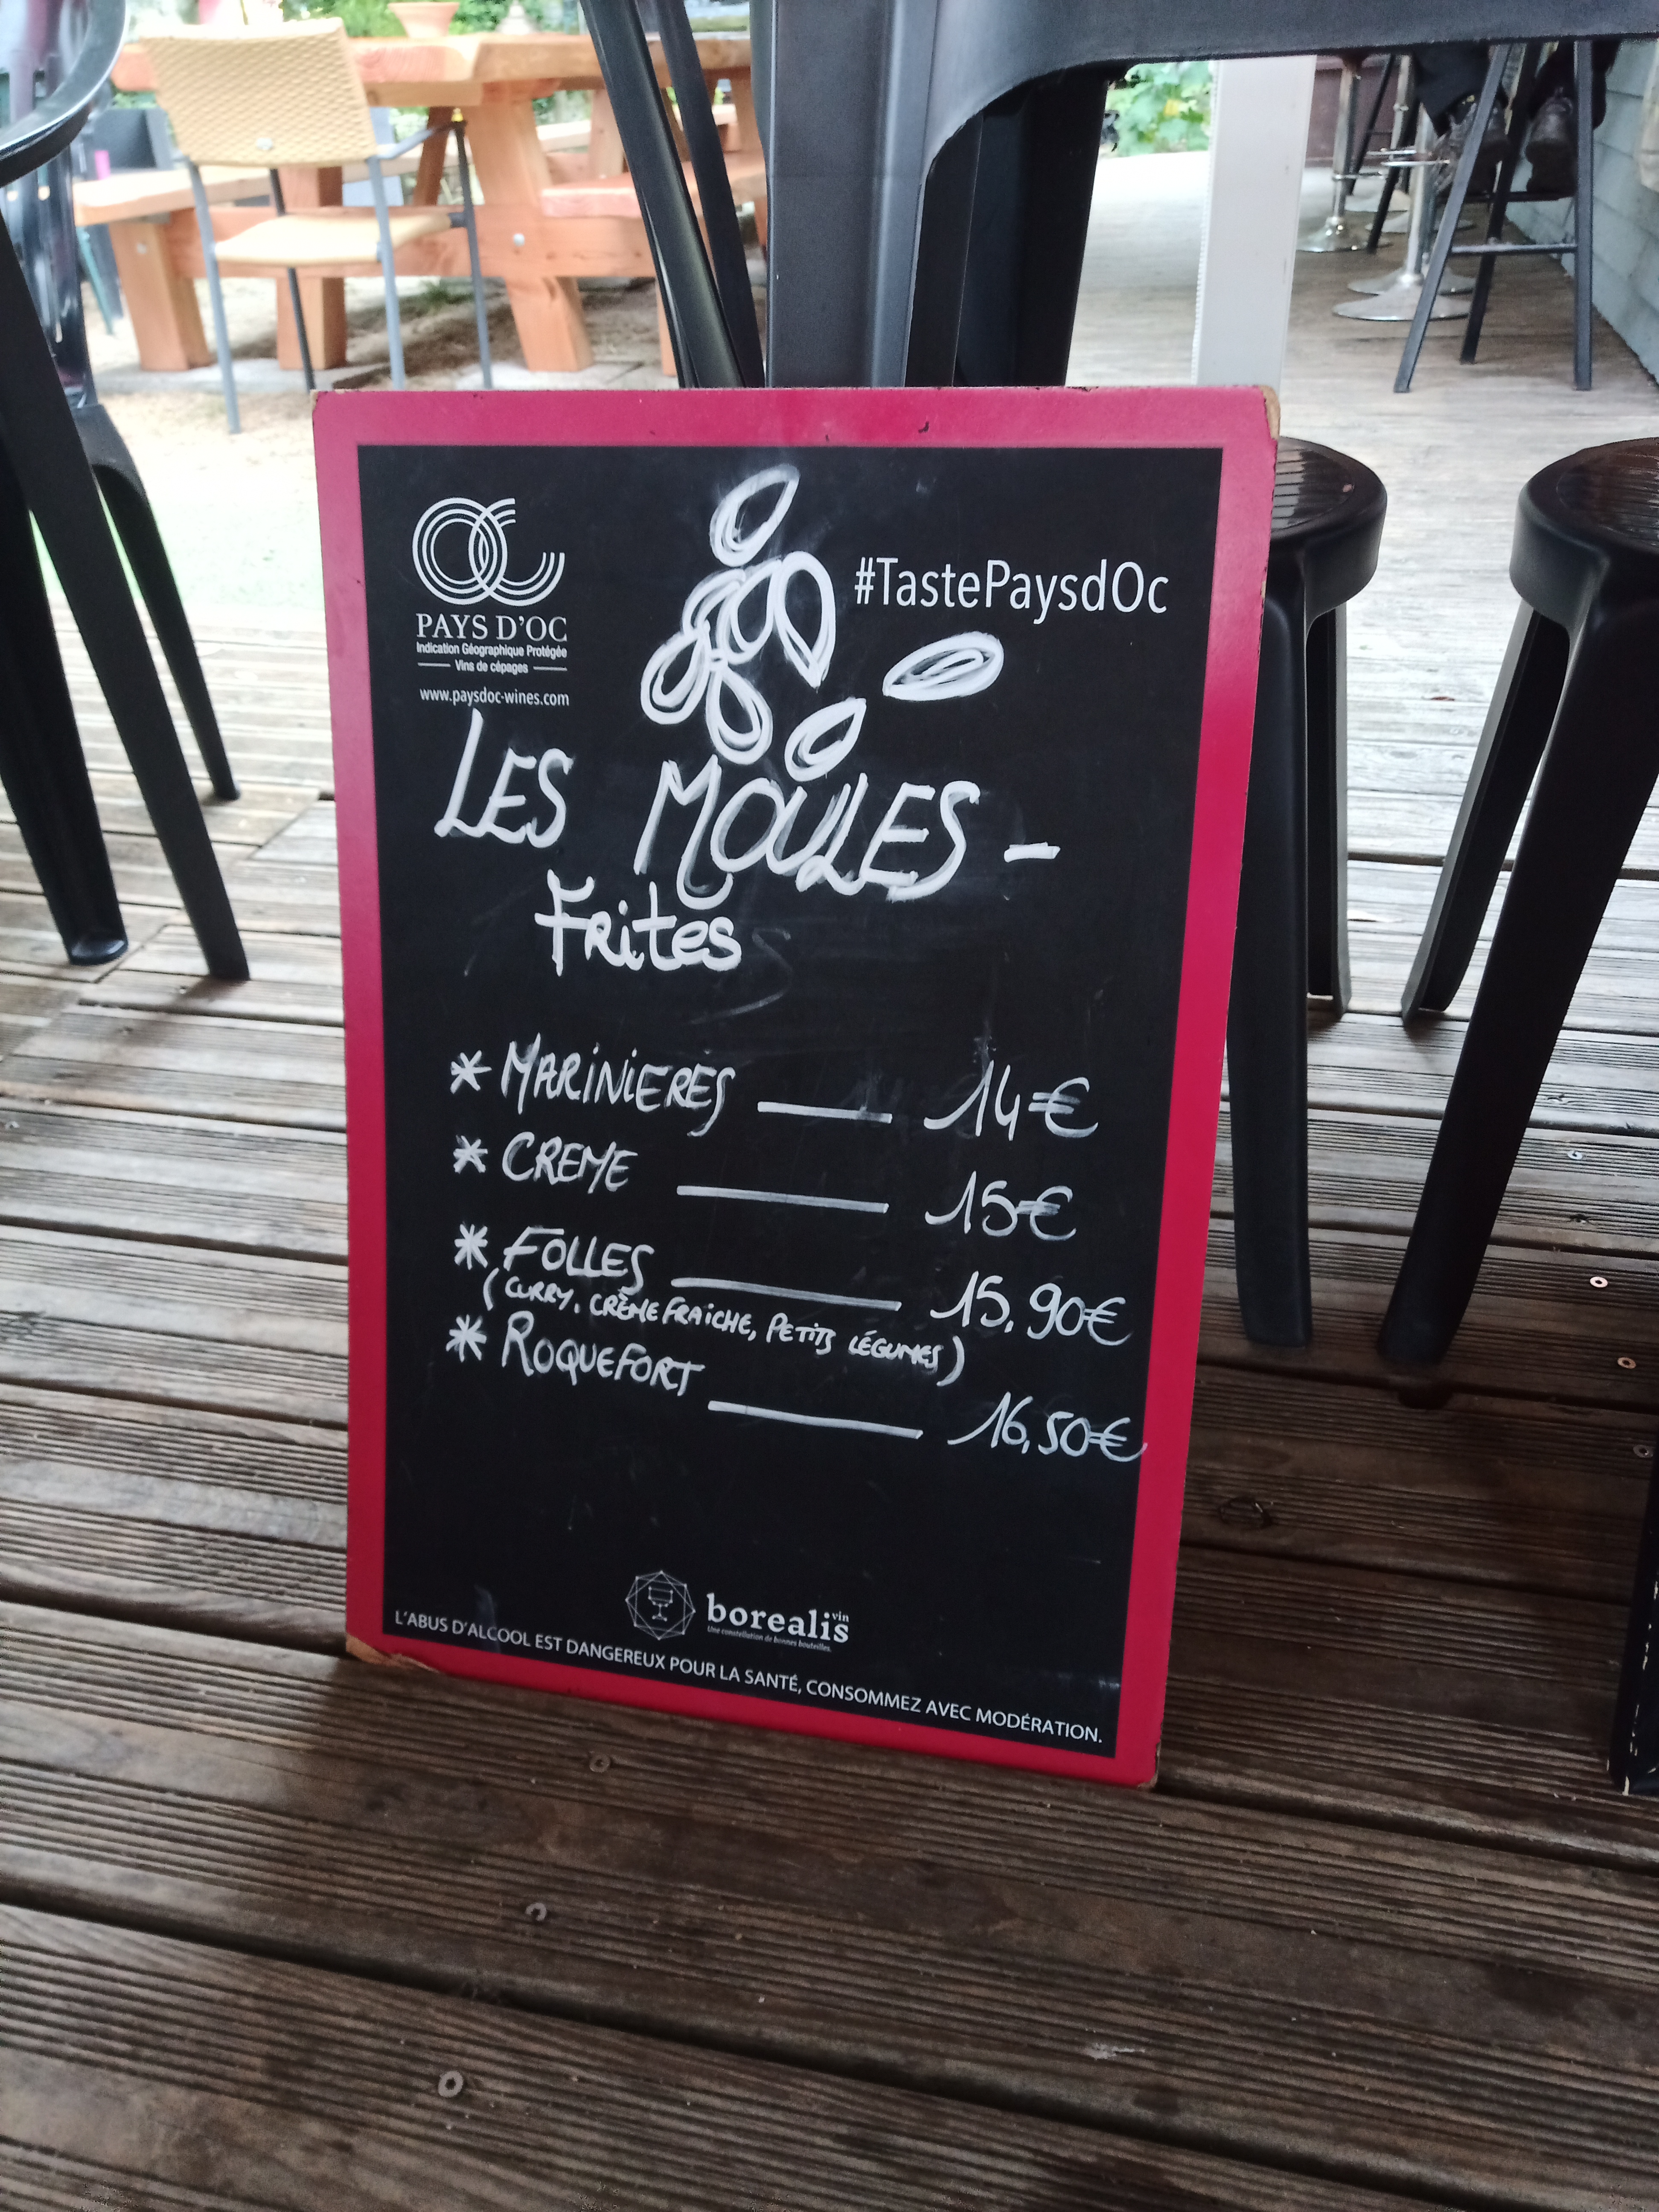 PAYS D'OC
Indication Géographique Protégée
Vins de cépages
www.paysdoc-wines.com
#TastePaysdOc
LES MOULES -
Frites
* MARINIERES — 14€
* CREME — 15€
* FOLLES — 15,90€
(CURRY, CRÈME FRAICHE, PETITS LÉGUMES)
* ROQUEFORT — 16,50€
borealis vin
Une constellation de bonnes bouteilles.
L'ABUS D'ALCOOL EST DANGEREUX POUR LA SANTÉ, CONSOMMEZ AVEC MODÉRATION.